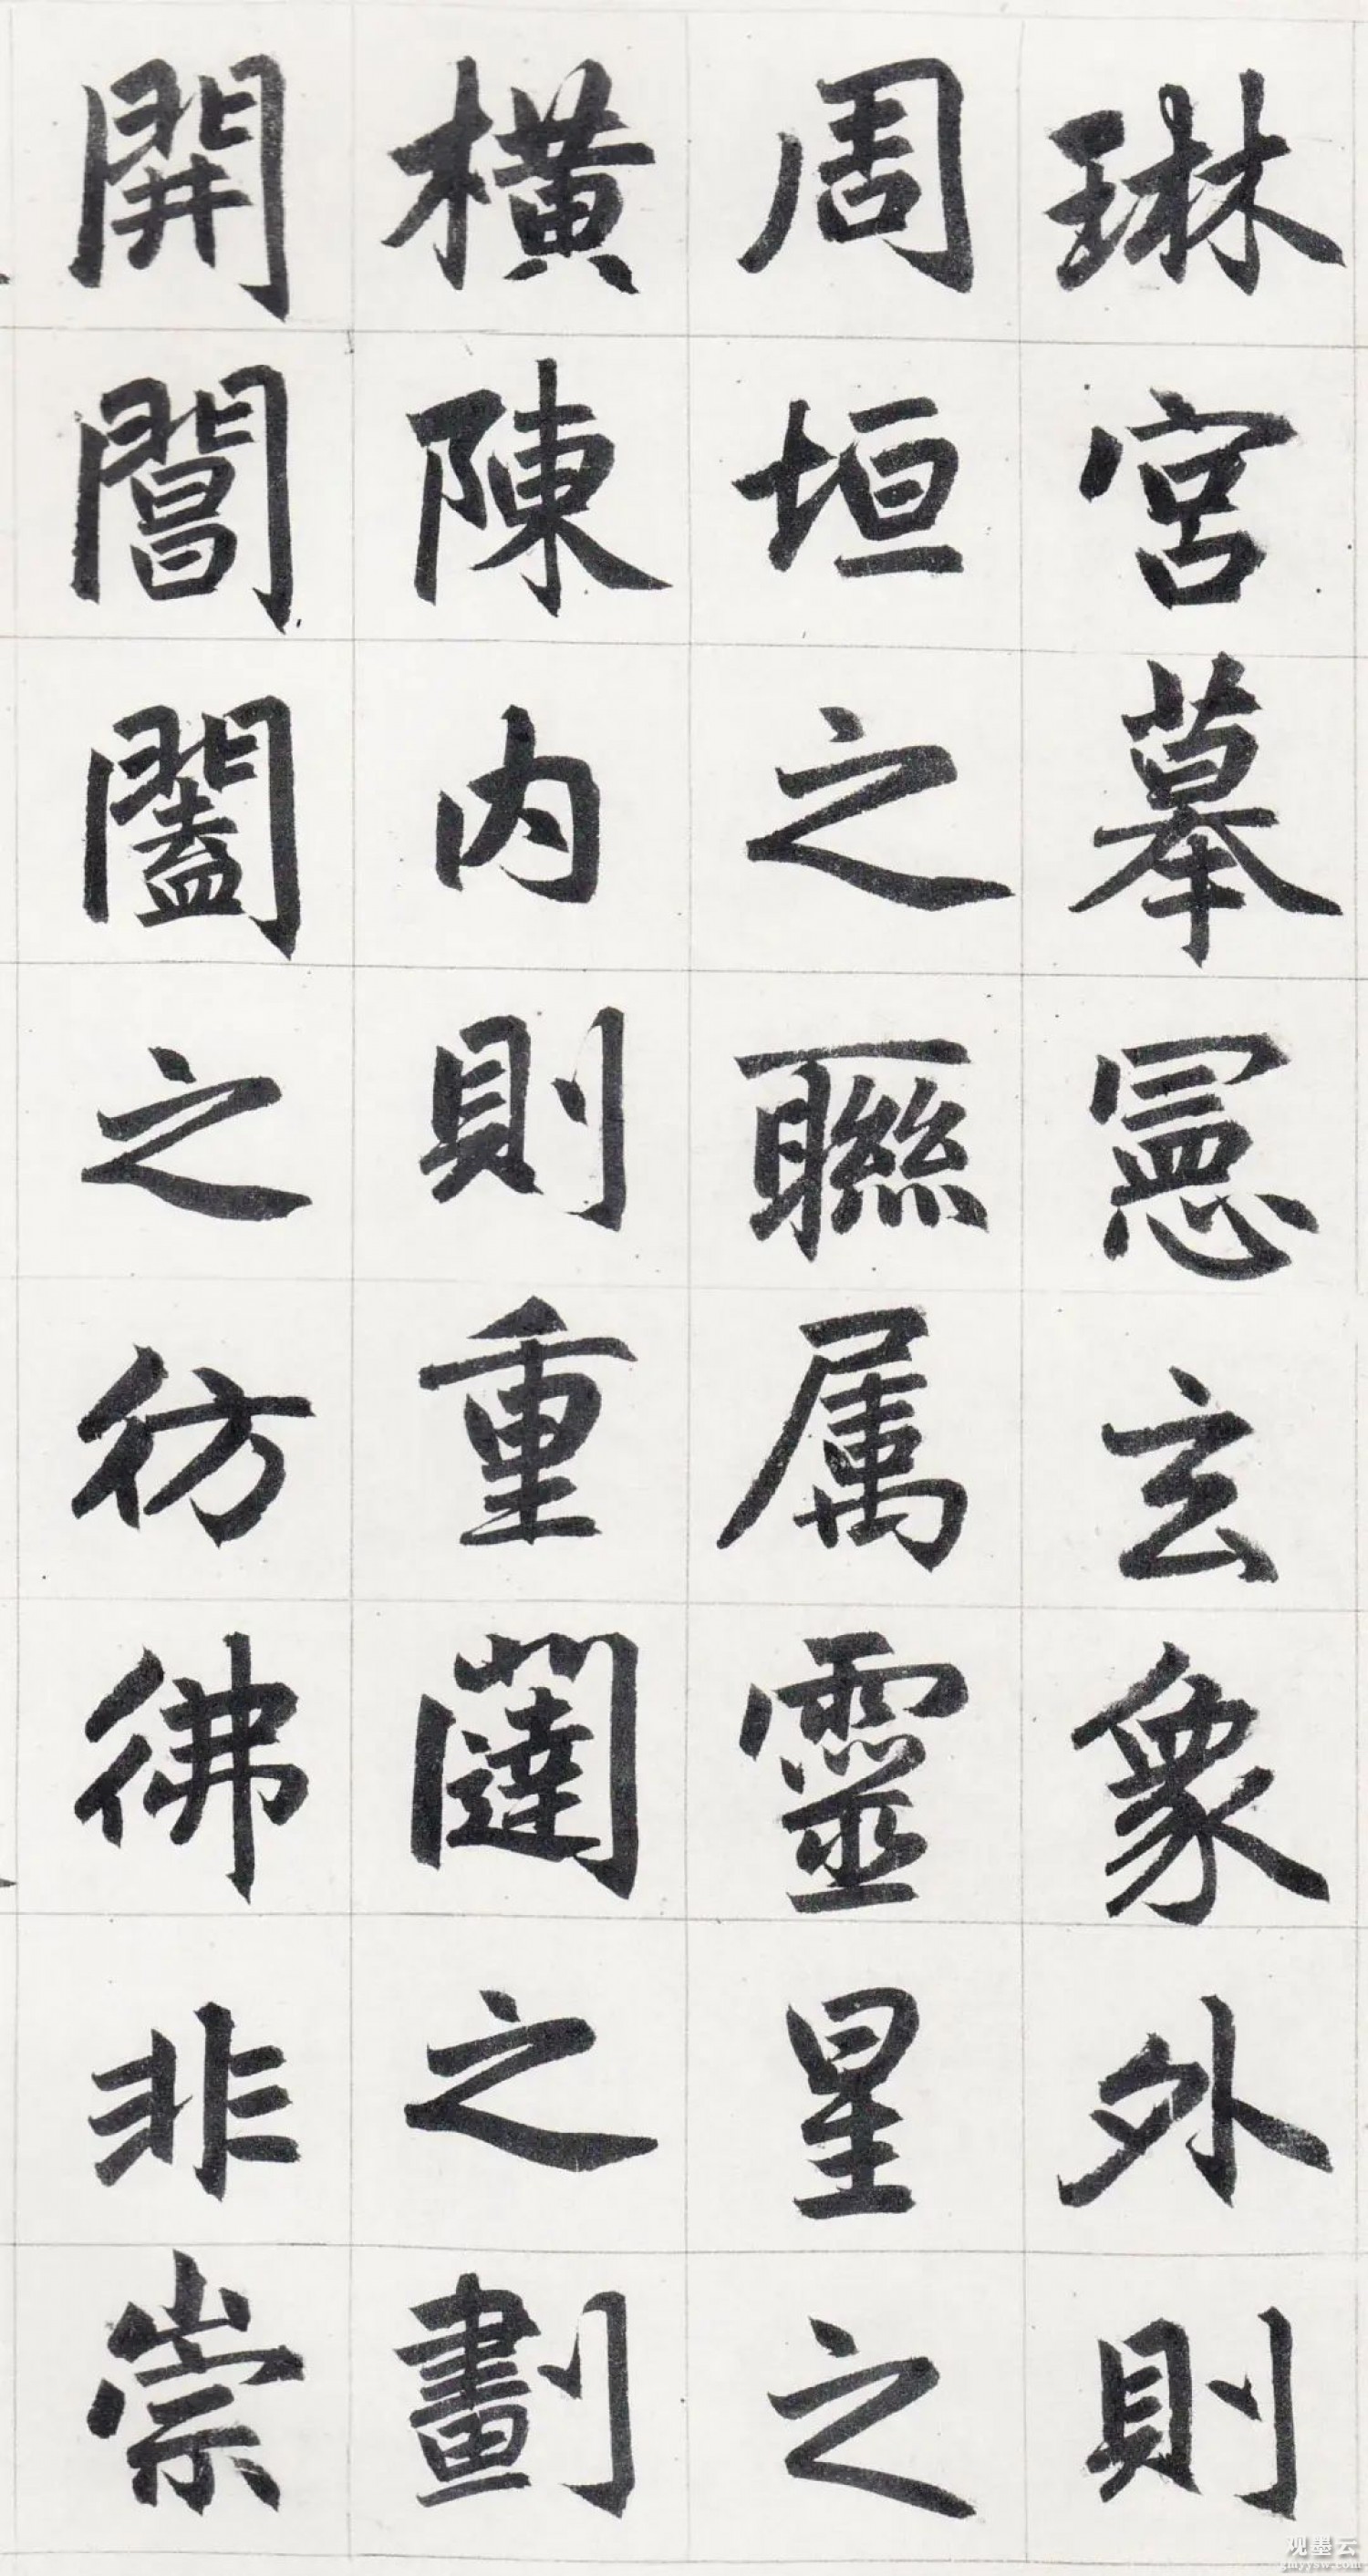 琳宮摹憲玄象外則
周垣之聯属靈星之
横陳内則重闥之劃
開閶闔之彷彿非崇
观墨云
gmyysw.com